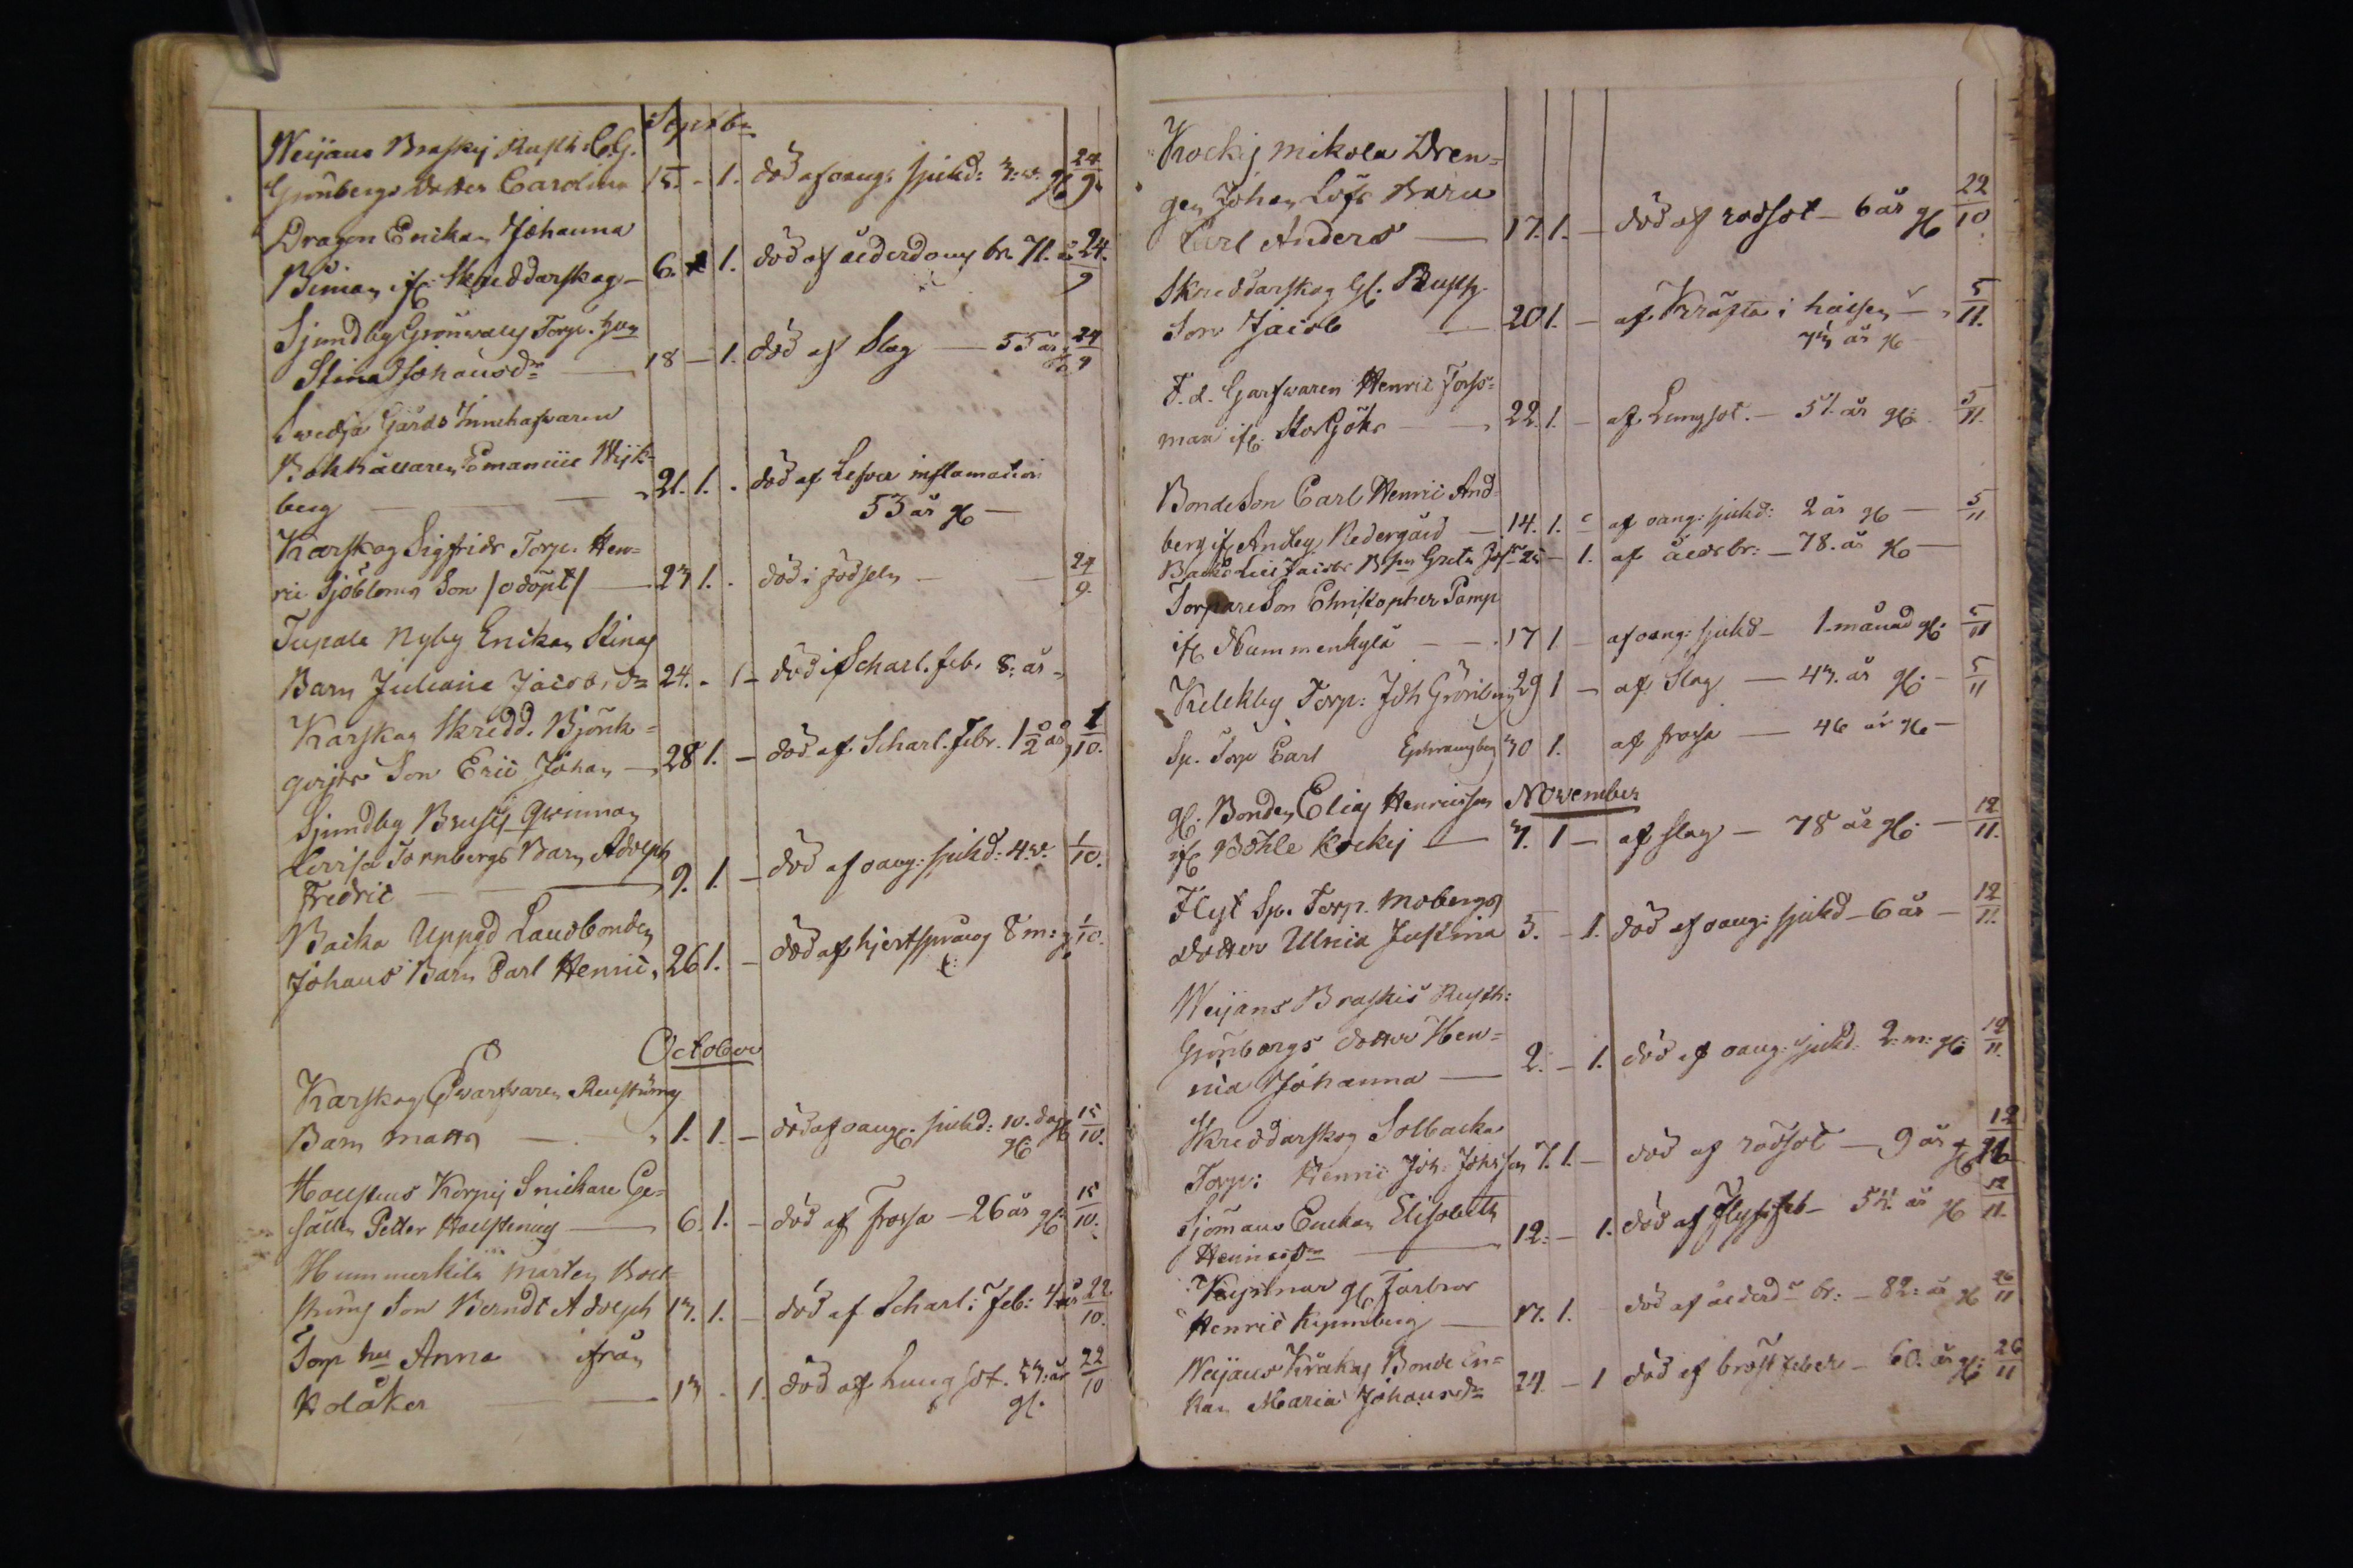 Septbr
Weijans Braskij Rusth: C. G.
Grönbergs dotter Carolina 15. - 1. död af oang: sjukd: 3: v. gl 24/9.
Dragon Enkan Johanna
Biman ifr: Skreddarskog - 6. 1. död af ålderdoms br. 71. år 24./9
Sjundby Grönvalls Torp. hu
Stina Johansdr - 18 - 1. död af Slag - 53 år 24/9
Svedja Gårds Innehafvaren
Bokhållaren Emanuel Wijk-
berg - 21. 1. - död af Lefver inflamation
53 år gl -
Karskog Sigfrids Torp. Hen=
ric Sjöbloms Son /odöpt/ - 23 1. - död i födseln - 24/9.
Tupala Nyby Enkan Stinas
Barn Juliana Jacobsdr 24. - 1 - död i Scharl. feb. 8: år -
Karskog Skredd. Björk=
qvists Son Eric Johan - 28 1. - död af Scharl. Febr. 1 1/2 år 1/10.
Sjundby Brusij Qvinnan
Lovisa Tornbergs Barn Adolph
Fredric - 9. 1. - död af oang: sjukd: 4. v. 1/10.
Backa Uppgd Landbonden
Johans Barn Carl Henric, 26 1. - död af hjertsprång 8 m: gl 1/10.
October
Karskog Garfvaren Renströms
Barn Matts - 1. 1. - död af oang. sjukd: 10. dag gl 15/10.
Hollstens Korpij Snickare Ge=
sällen Petter Hollstenius - 6. 1. - död af Frossa - 26 år gl: 15/10.
Hummerkila Mårten Bolt=
ströms Son Berndt Adolph 13. 1. - död af Scharl: Feb: 4 år 22/10.
Torp hu Anna ifrån
Kolåker - 13 - 1. död af Lungsot. 53: år gl. 22/10
Kockij Mikola Dren=
gen Johan Löfs Barn
Carl Anders - 17. 1. - död af rödsot - 6 år gl 22/10.
Skreddarskog Gl. Rusth.
Son Jacob - 20 1. - af Kräfta i halsen - 5/11.
73 år gl -
F. d. Garfvaren Henric Forss=
man ifr: Storsjöhr - 22. 1. - af Lungsot. - 51. år gl: 5/11.
Bondeson Carl Henric And
berg ifr Anskog Nedergård - 14. 1. - af oang: sjukd: 2 år gl - 5/11
Backa Lill Jacobs Bhu Greta Johsdr 25 - 1. af ålders br: - 78. år gl -
Torpare Son Christopher Pamp
ifr Nummenkylä - 17 1 - af oang: sjukd - 1. månad gl: 5/11
Kelekby Torp: Joh Grönberg 29 1 - af Slag - 43. år gl: - 5/11
Sp. Torp Carl Ephraimsberg 30 1. af frossa - 46 år gl -
November
gl. Bonden Elias Henricsson
ifr Böhle Kockij - 3. 1 - af slag - 78 år gl: - 12/11.
Flyt Sp. Torp. Mobergs
dotter Ulrica Justina 5. - 1. död af oang: sjukd - 6 år - 12/11.
Weijans Braskis Rusth:
Grönbergs dotter Hen=
rica Johanna - 2. - 1. död af oang: sjukd: 2: m: gl: 12/11.
Skreddarskog Solbacka
Torp: Henric Joh: Johsson 7. 1. - död af rödsot - 9 år gl 12/11
Sjömans Enkan Elisabeth
Henricsdr - 12. - 1. död af Flyss feb - 54. år gl 12/11.
gl Farbror
Henric - 17. 1. död af ålderds br: - 82: år gl 26/11
Weijans Kråkas Bonde En=
kan Maria Johansdr 24. - 1 död af bröst feber - 60. år gl: 26/11